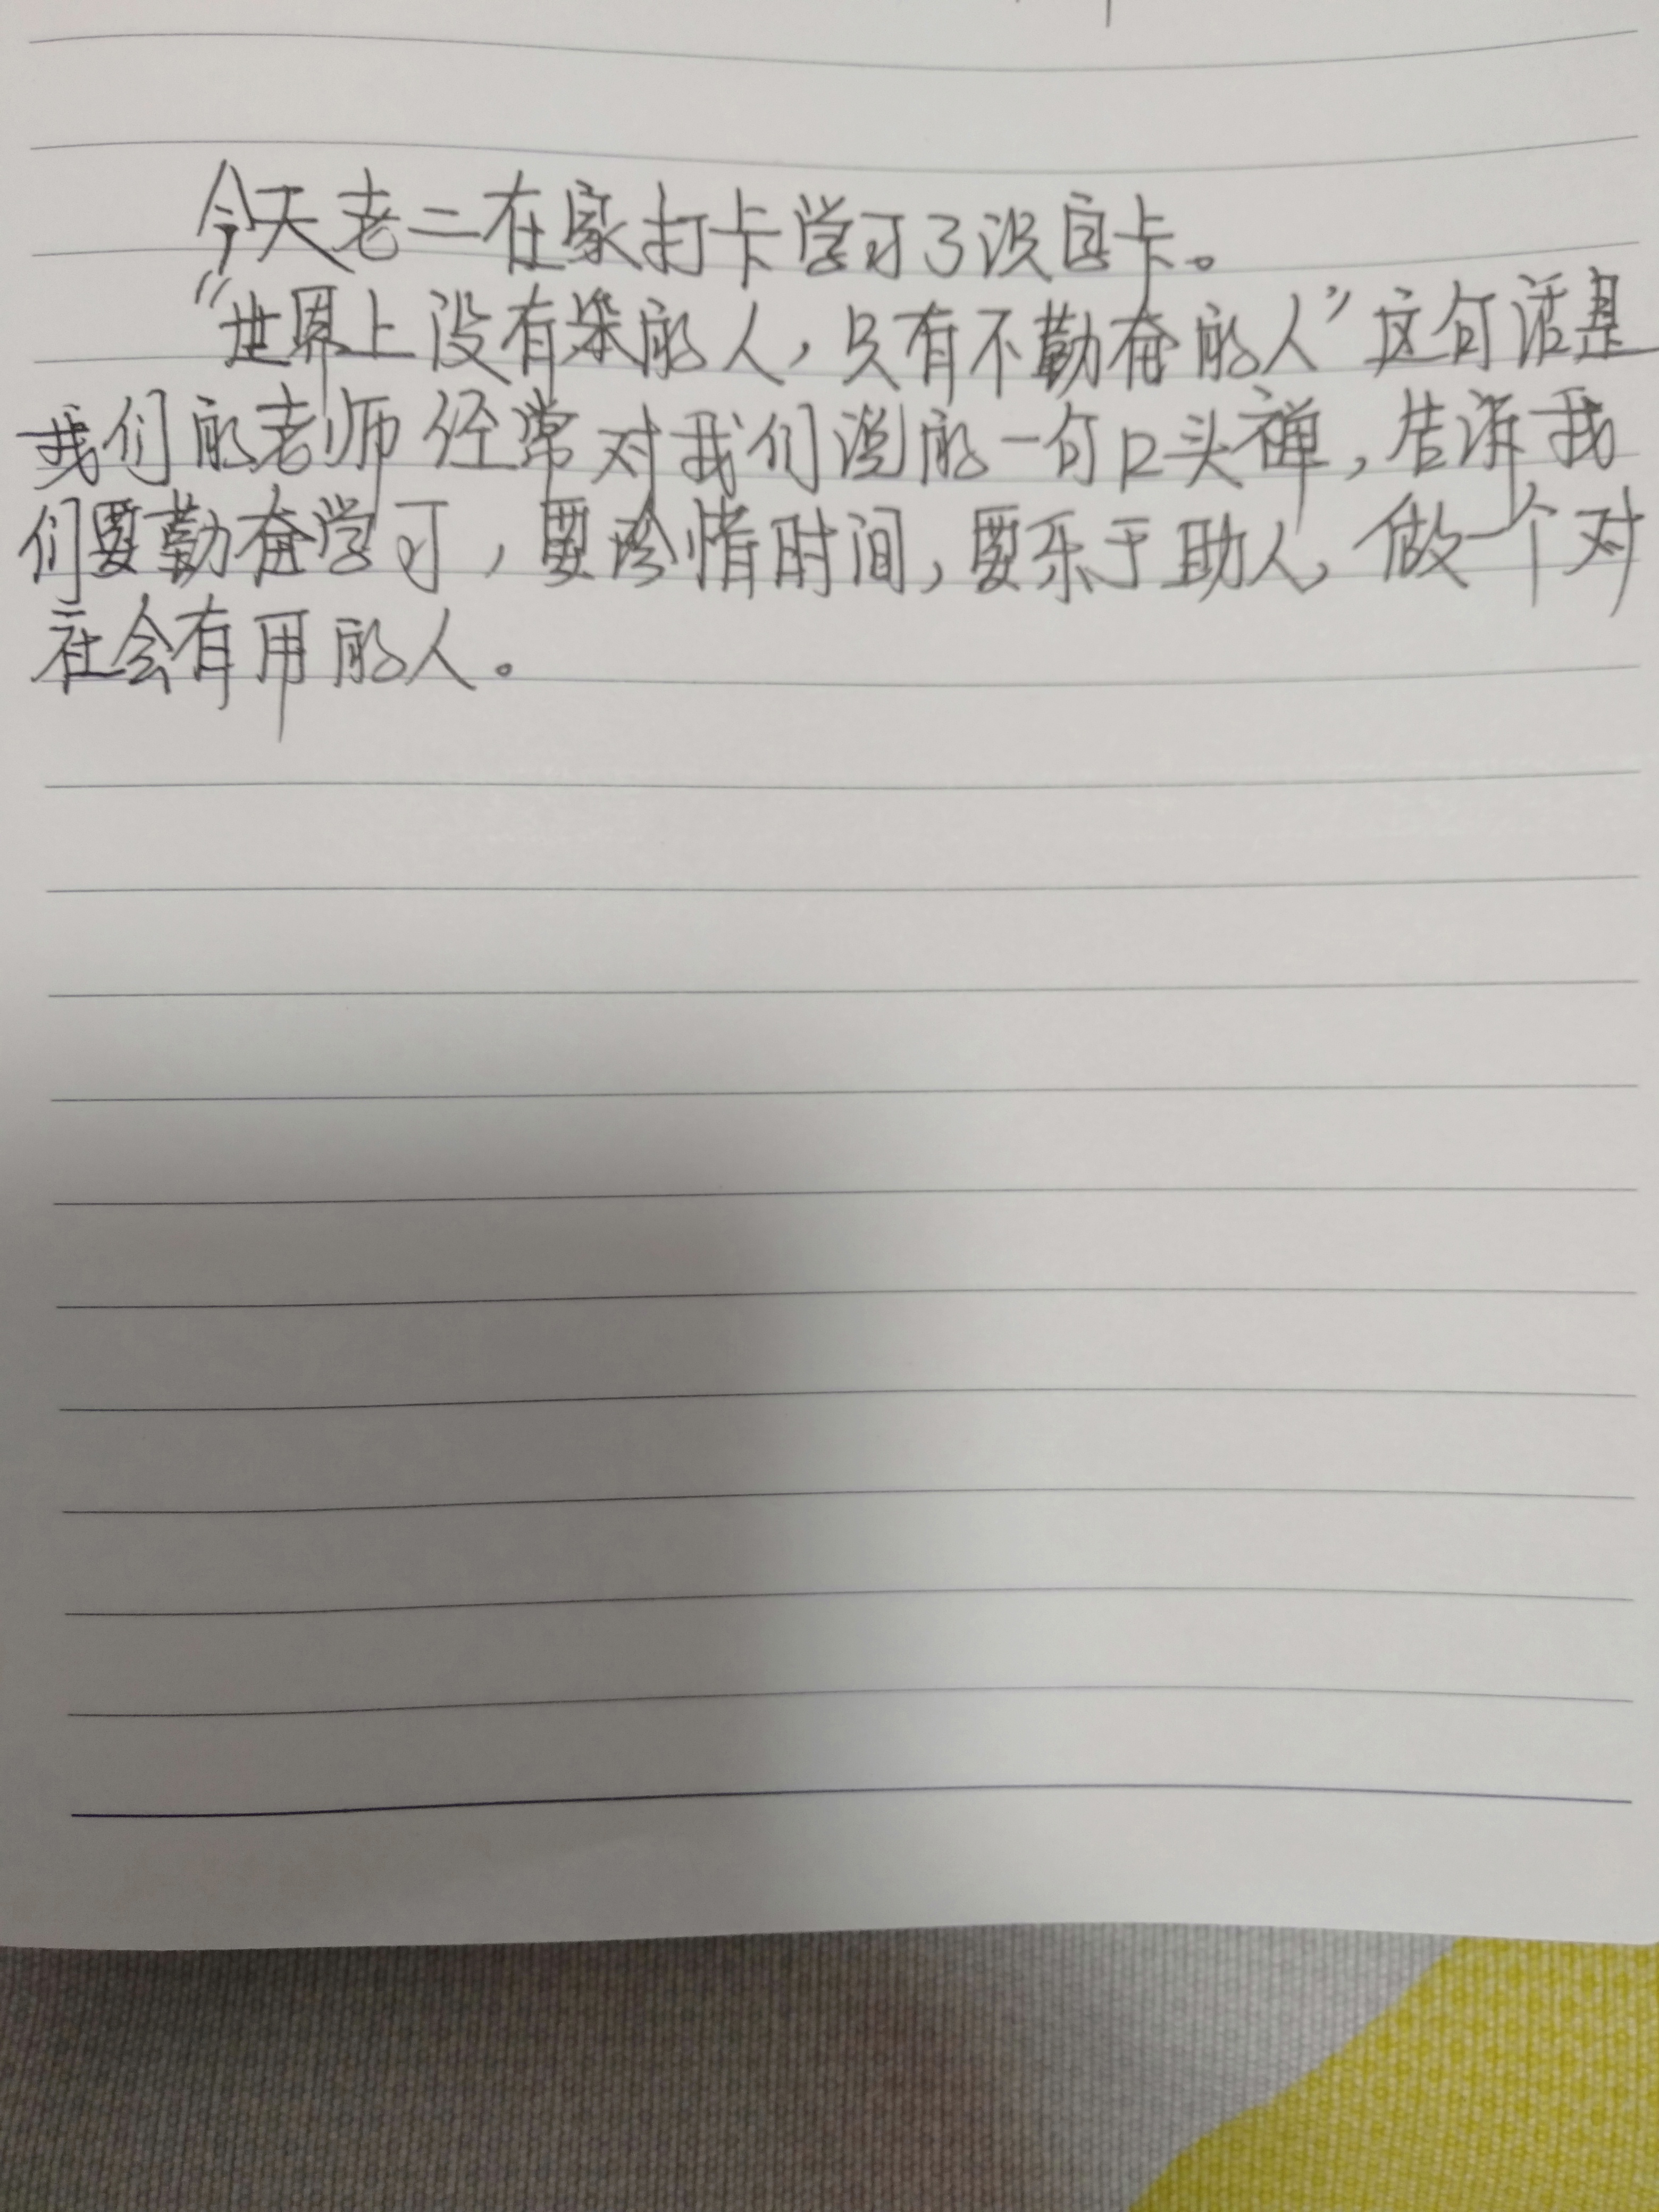 今天老二在家打卡学习了识字卡。
“世界上没有笨的人，只有不勤奋的人”这句话是
我们的老师经常对我们说的一句口头禅，告诉我
们要勤奋学习，要珍惜时间，要乐于助人，做一个对
社会有用的人。